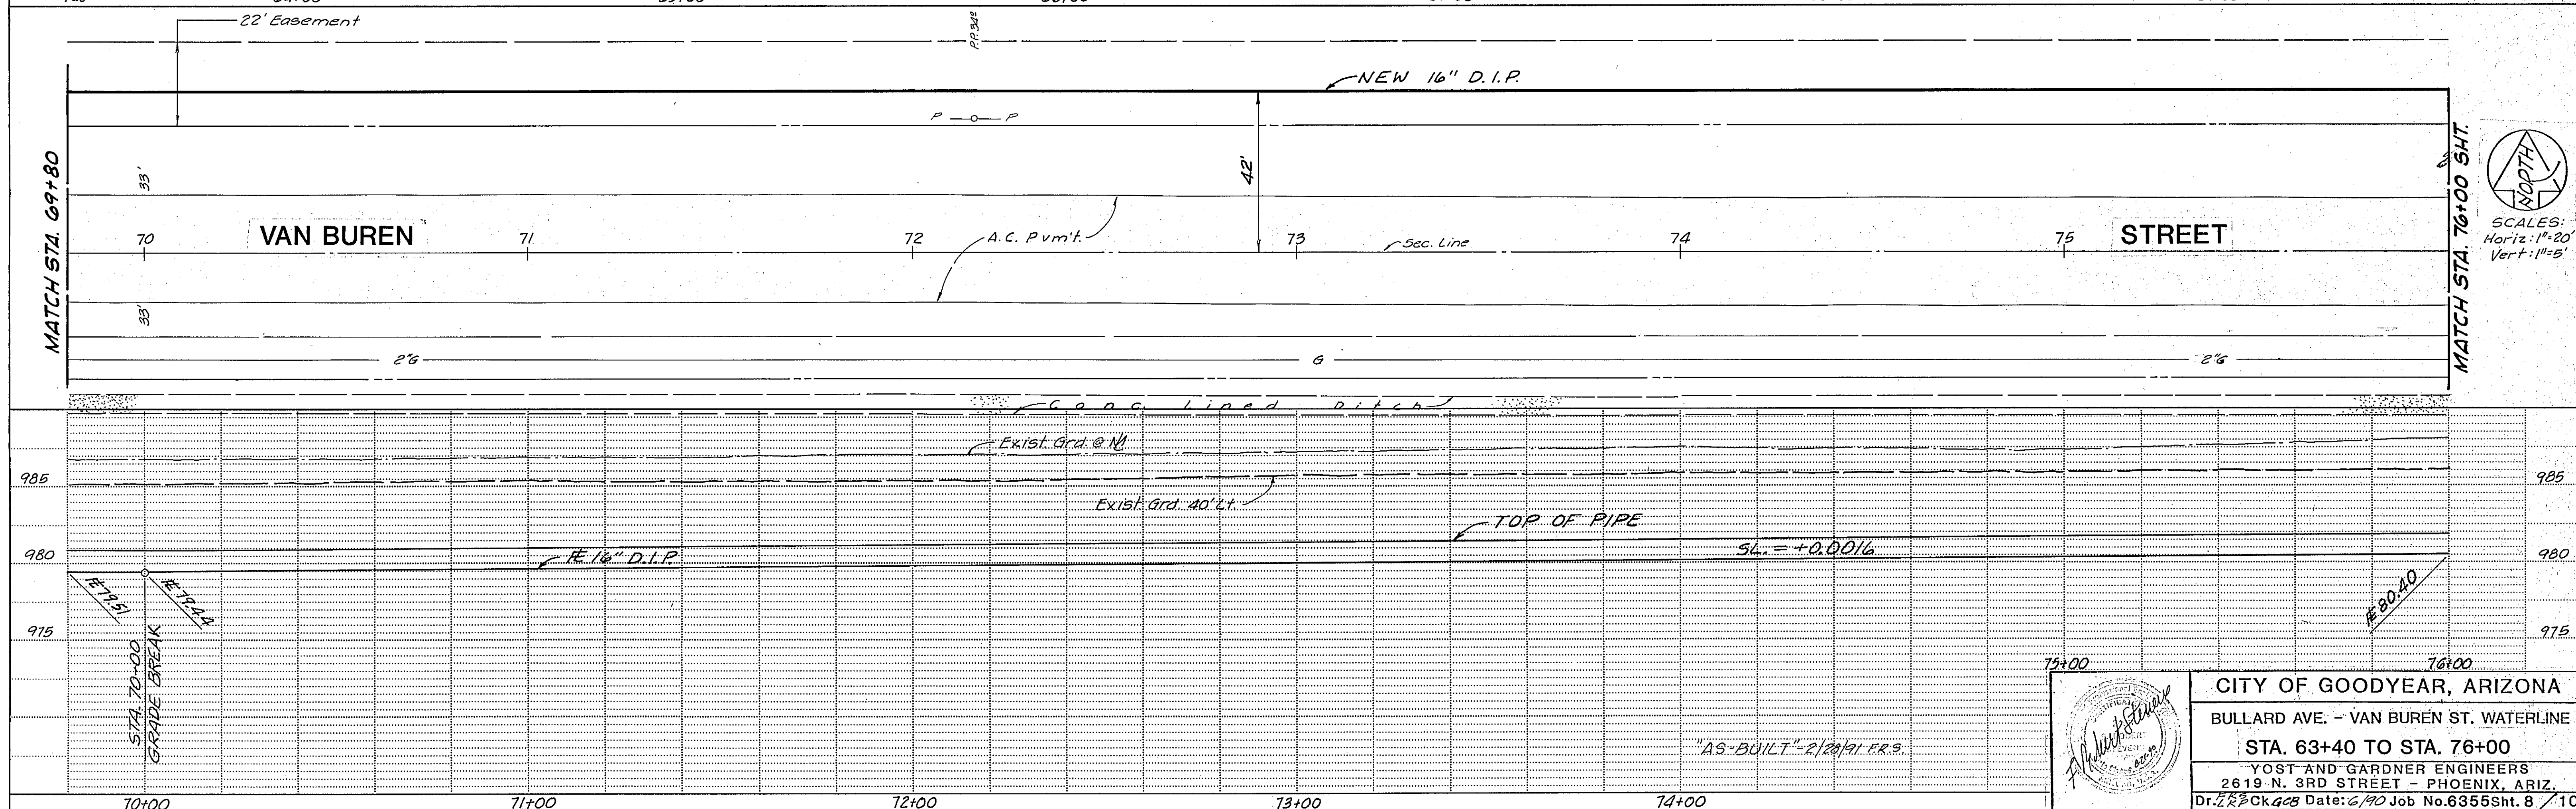 22' Easement
P.P. 34º
NEW 16" D.I.P.
P P
42'
MATCH STA. 69+80
33'
33'
VAN BUREN
STREET
70 71 72 73 74 75
A.C. Pvm't.
Sec. Line
MATCH STA. 76+00 SHT.
NORTH
SCALES:
Horiz: 1"=20'
Vert: 1"=5'
2"G G 2"G
Conc. Lined Ditch
Exist. Grd. @
985 985
Exist. Grd. 40' Lt.
TOP OF PIPE
980 980
16" D.I.P.
SL. = +0.0016
79.51
79.44
80.40
975 975
STA. 70+00
GRADE BREAK
75+00 76+00
"AS-BUILT"-2/28/91 F.R.S.
CITY OF GOODYEAR, ARIZONA
BULLARD AVE. - VAN BUREN ST. WATERLINE
STA. 63+40 TO STA. 76+00
YOST AND GARDNER ENGINEERS
2619 N. 3RD STREET - PHOENIX, ARIZ.
Dr. Ck GCB Date: 6/90 Job No. 6355 Sht. 8 / 10
70+00 71+00 72+00 73+00 74+00